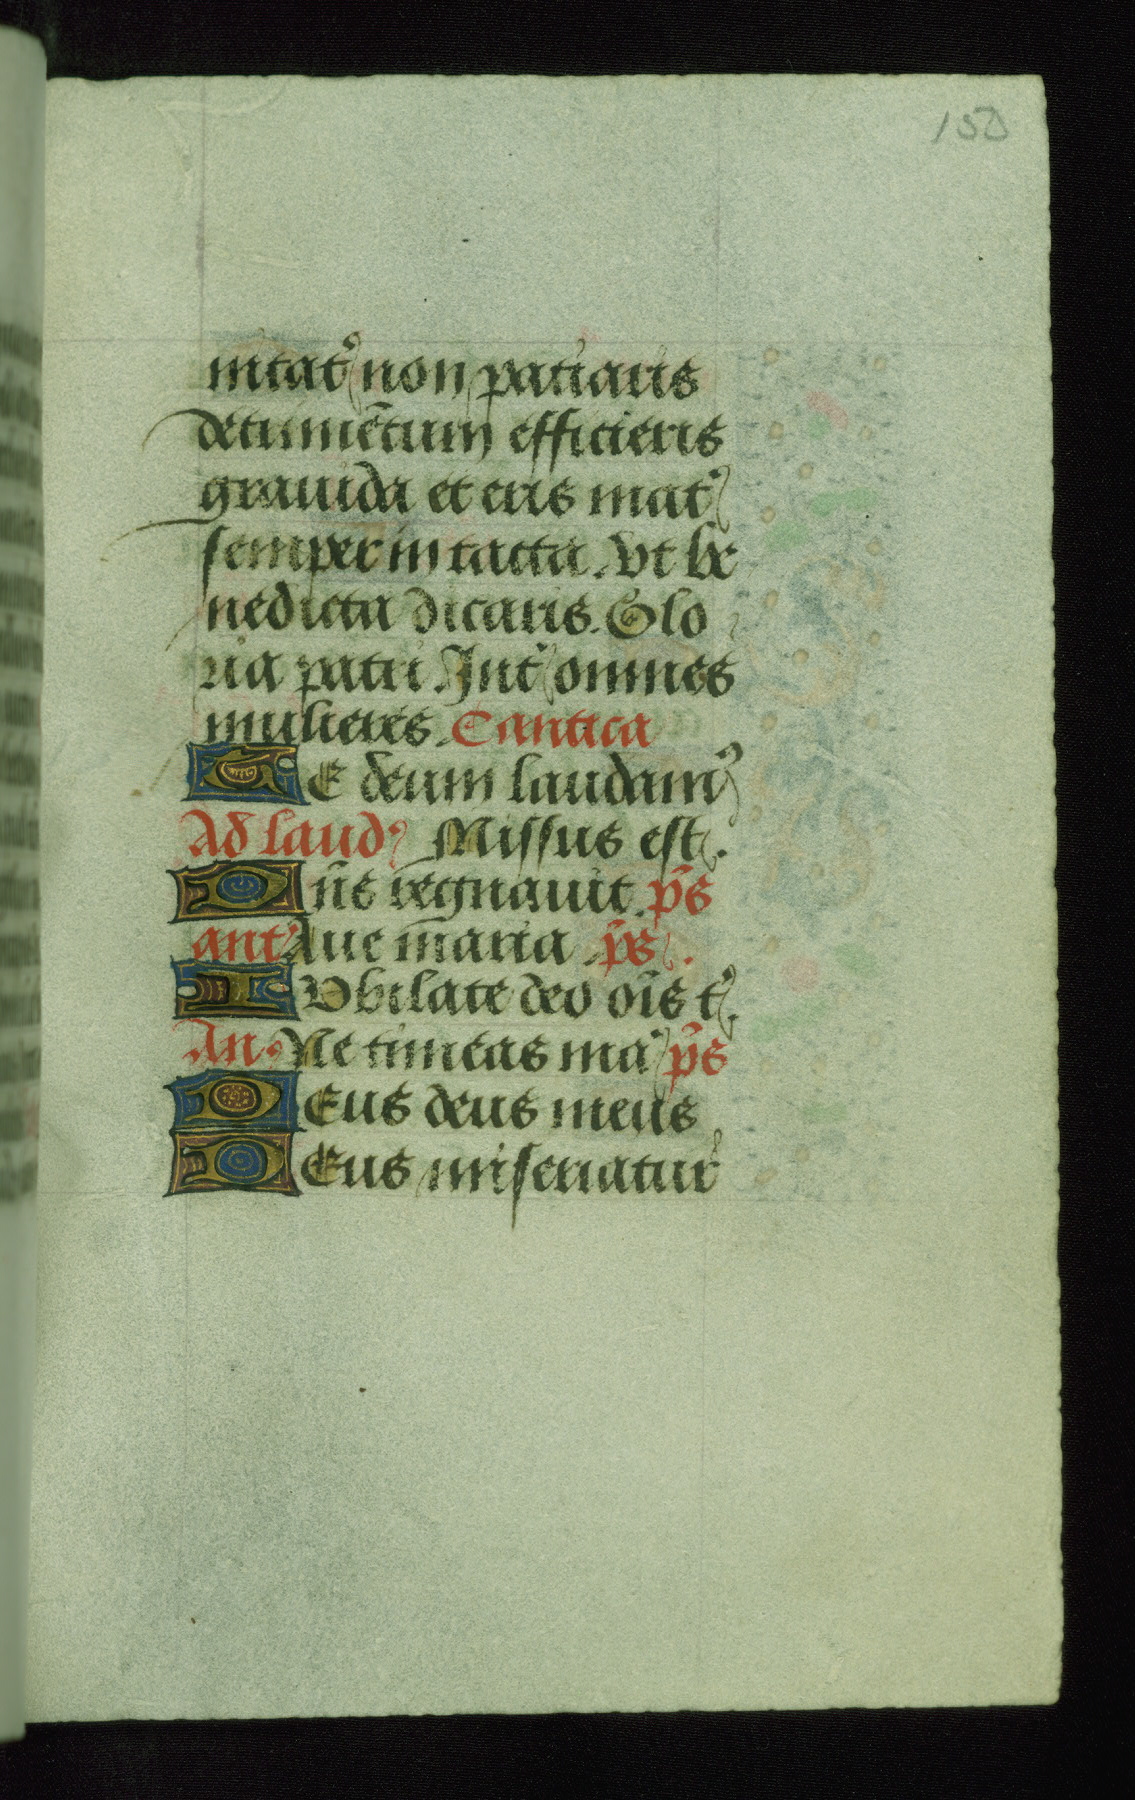 150
nitatꝰ non patiaris
detrimētum efficieris
grauida et eris mat᷒
semper in tacta. Vt be
nedicta dicaris. Glo
ria patri. Int᷒ omnes
mulieres. Cantica
TE deum laudamꝰ
Ad laud᷒ Missus est.
Dn̄s regnauit. p̄s
ant᷒ Aue maria. p̄s.
IVbilate deo oīs t᷒.
An. Ne timeas ma᷒ p̄s
DEus deus meus
DEus miseriatur